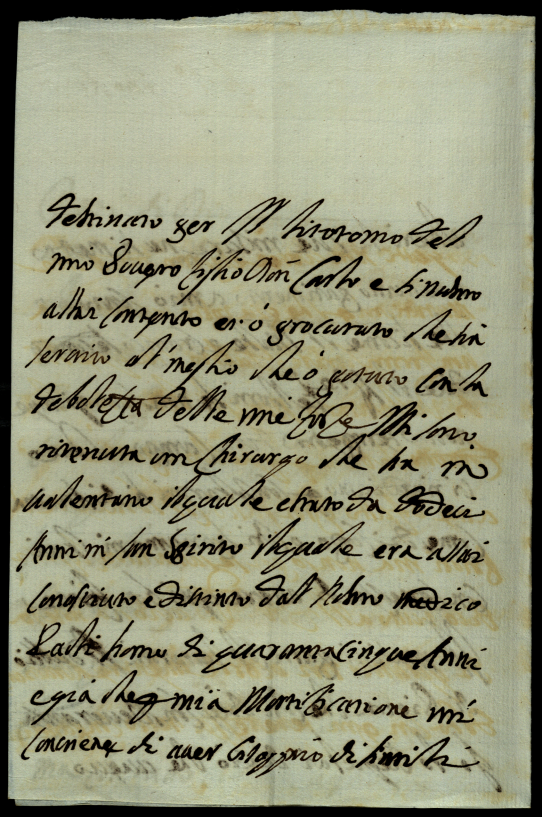 destinato per il ritorno del
mio Suocero figlio Don Carlo e
assai Contento et ó procurato che sia
servito al meglio che ó potuto con la
debolezza delle mie forze Mi sono
ritenuta un Chirurgo che sta in
valentano il quale è stato da dodeci
Anni in San Spirito il quale era assai
conosciuto e distinto dal medico
homo di quaranta cinque Anni
e già che p mia Mortificatione mi
conviene di aver bisogno di simili